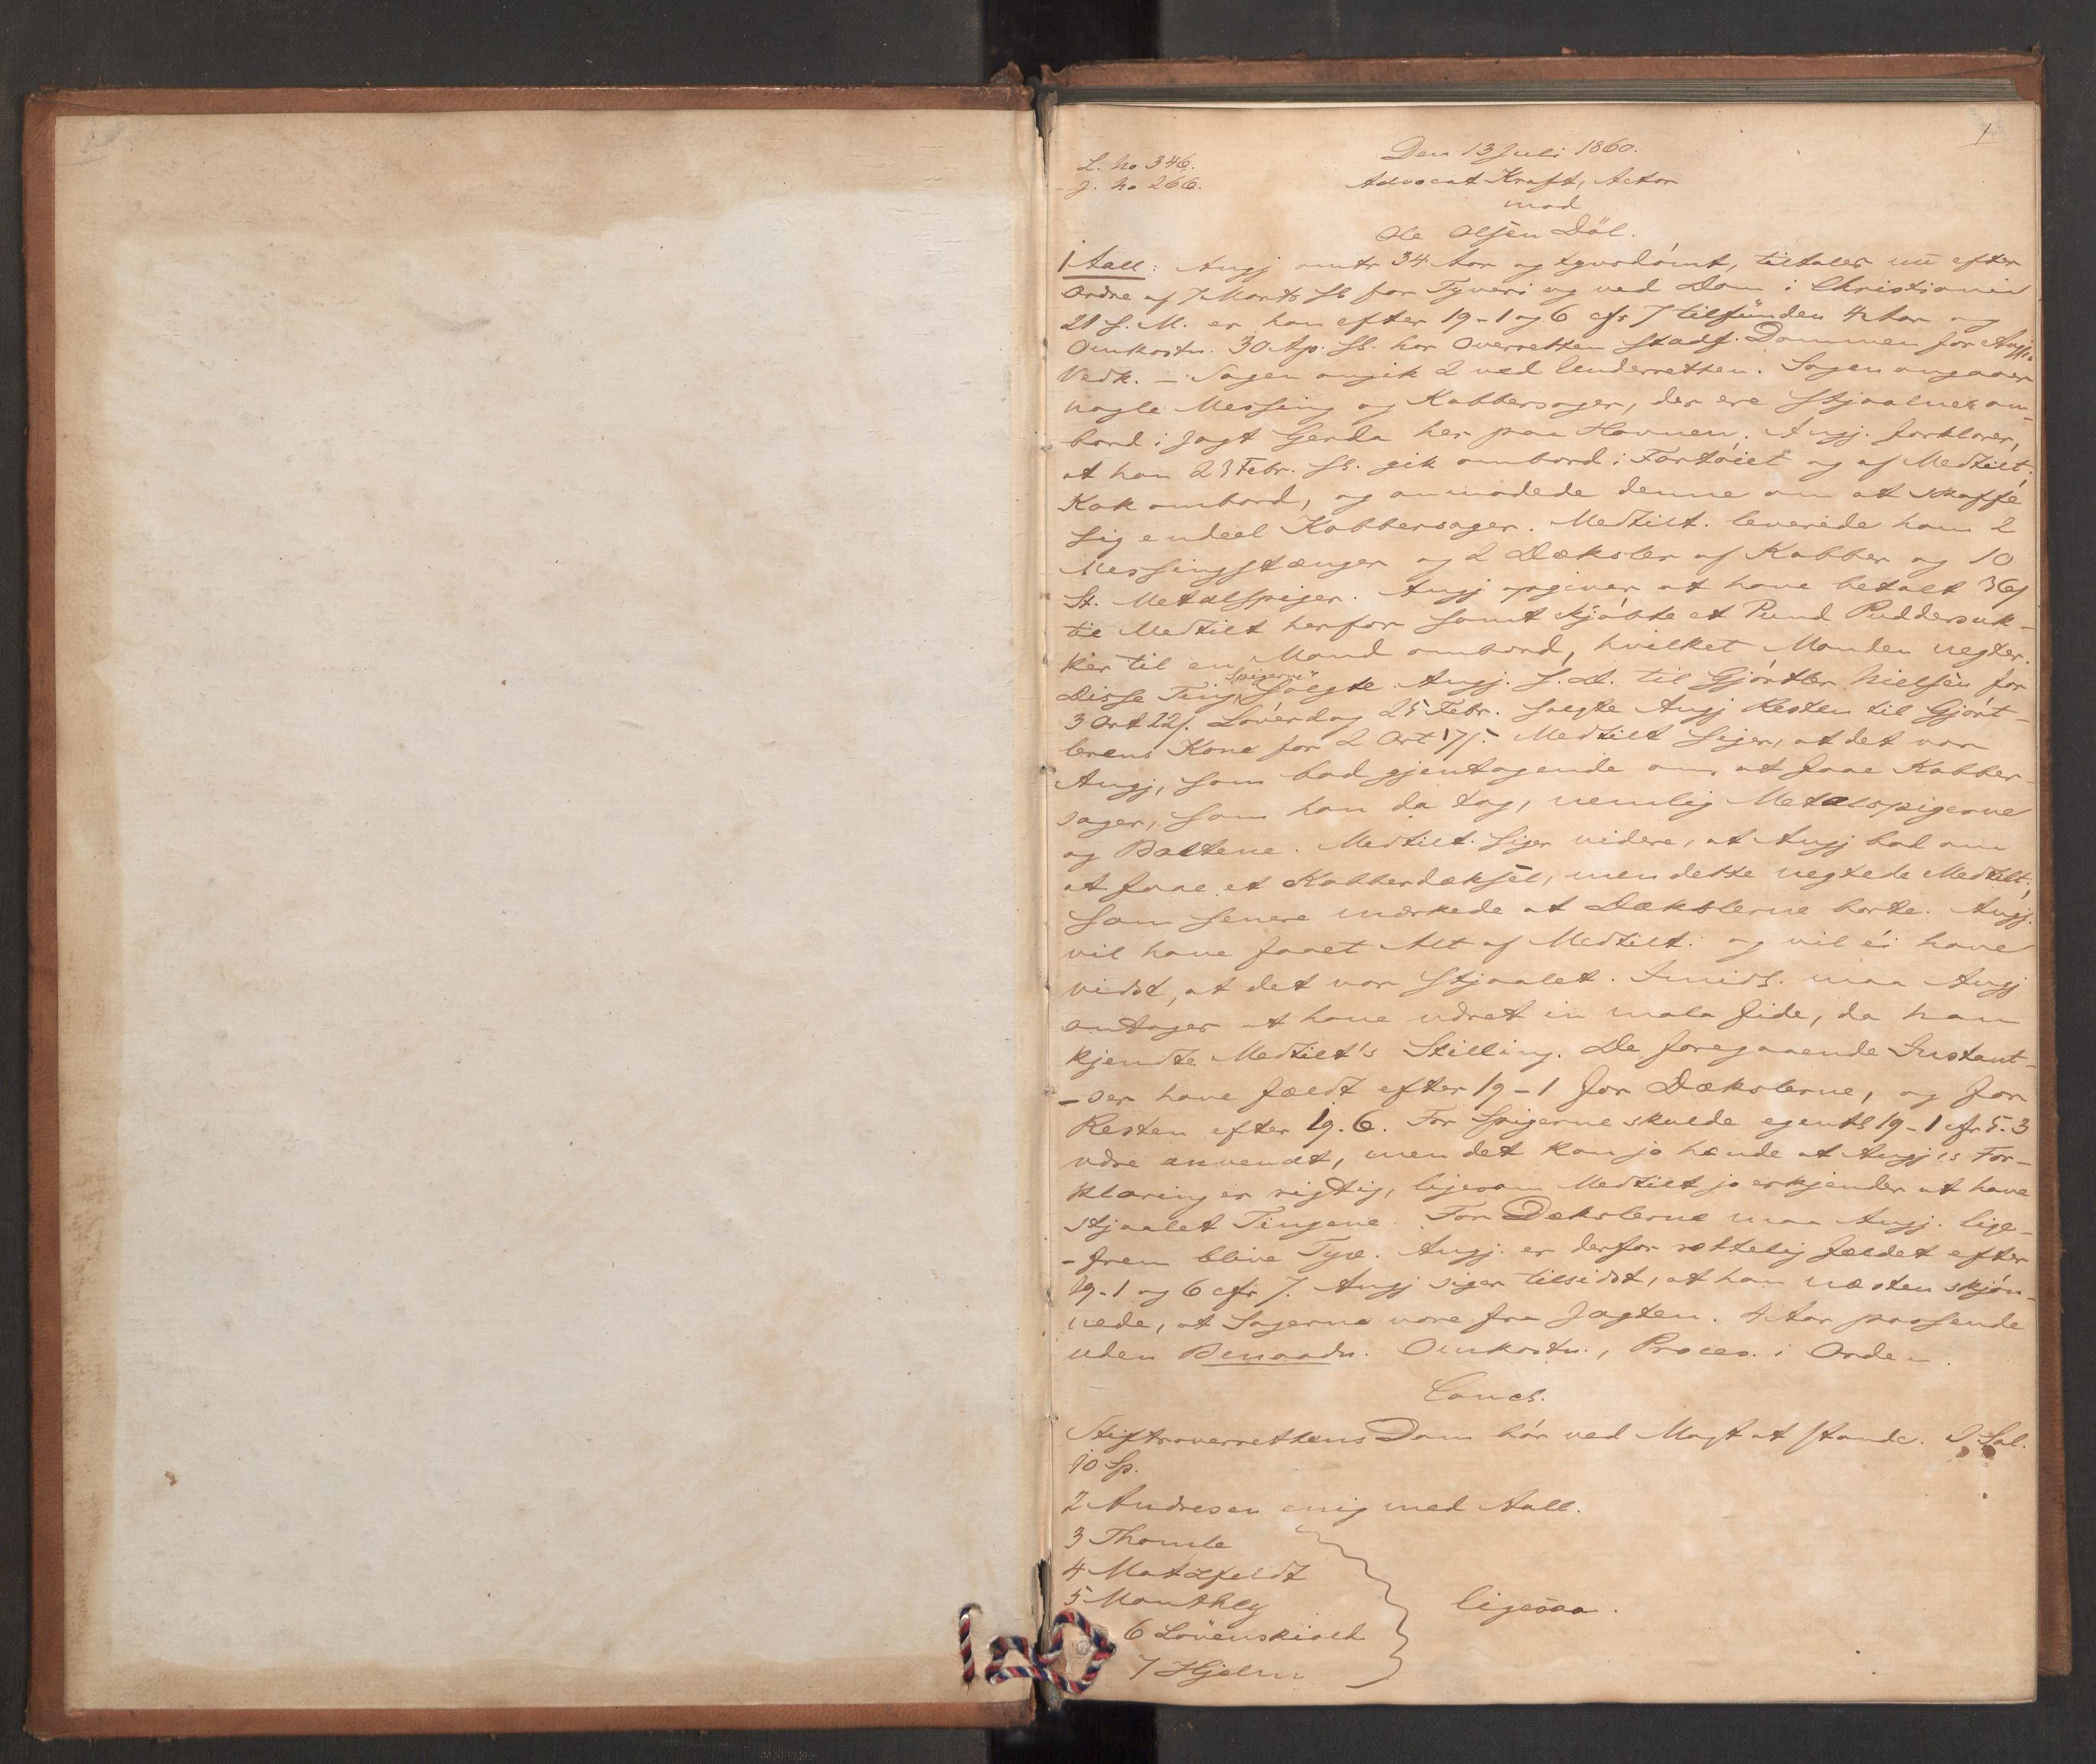 1
Den 13 Juli 1860.
L. No 346.
J. No 266.
Advocat Kraft, Actor
mod
Ole Olsen Döl.
1 Aall: Angj omtr 34 Aar og tyvsdömt, tiltales nu efter
Ordre af 7 Marts ds for Tyveri og ved Dom i Christiania
21 s. M. er han efter 19-1 og 6 cfr 7 tilfunden 4 Aar og
Omkostn. 30 Ap. ds. har Overretten stadf. Dommen for Angjs
Vedk. — Sagen angik 2 ved Underretten. Sagen angaaer
nogle Messing og Kobbersager, der ere stjaalne om-
bord i Jagt Gerda her paa Havnen. Angj. forklarer,
at han 23 Febr. ds. gik ombord i Fartöiet og af Medtilt.
Kok ombord, og anmodede denne om at skaffe
sig endeel Kobbersager. Medtilt. leverede ham 2
Messingstænger og 2 Dæksler af Kobber og 10
St. Metalspiger. Angj opgiver at have betalt 36 s
til Medtilt herfor samt kjöbte et Pund Puddersuk-
ker til en Mand ombord, hvilket Manden negter.
Disse Ting, spigerne solgte Angj. s. D. til Gjörtler Nielsen for
3 Ort 22 s. Löverdag 25 Febr. solgte Angj Resten til Gjört-
lerens Kone for 2 Ort 17 s. Medtilt siger, at det var
Angj, som bad gjentagende om at faae Kobber-
sager, som han da tog, nemlig Metalspigerne
og Boltene. Medtilt. siger videre, at Angj bad om
at faae et Kobberdæksel, men dette negtede Medtilt.,
som senere mærkede at Dækslerne borte. Angj.
vil have faaet Alt af Medtilt. og vil ei have
vidst, at det var stjaalet. Imids. maa Angj
antages at have været in mala fide, da han
kjendte Medtilt's Stilling. De foregaaende Instant-
-ser have fældt efter 19-1 for Dækslerne, og for
Resten efter 19.6. For Spigerne skulde egentl 19-1 cfr 5.3
være anvendt, men det kan jo hænde at Angj's For-
klaring er rigtig, ligesom Medtilt jo erkjender at have
stjaalet Tingene. For Dækslerne maa Angj. lige-
-frem blive Tyv. Angj. er derfor rettelig fældet efter
19-1 og 6 cfr 7. Angj siger tilsidst, at han næsten skjön-
nede, at Sagerne vare fra Jagten. 4 Aar passende
uden Benaadn. Omkostn., Proces. i Orden.
Concl.
Stiftsoverrettens Dom bör ved Magt at stande. S. Sal.
10 Sp.
2 Andresen enig med Aall.
3 Thomle
4 Motzfeldt
5 Manthey
ligesaa.
6 Lövenskiold
7 Hjelm